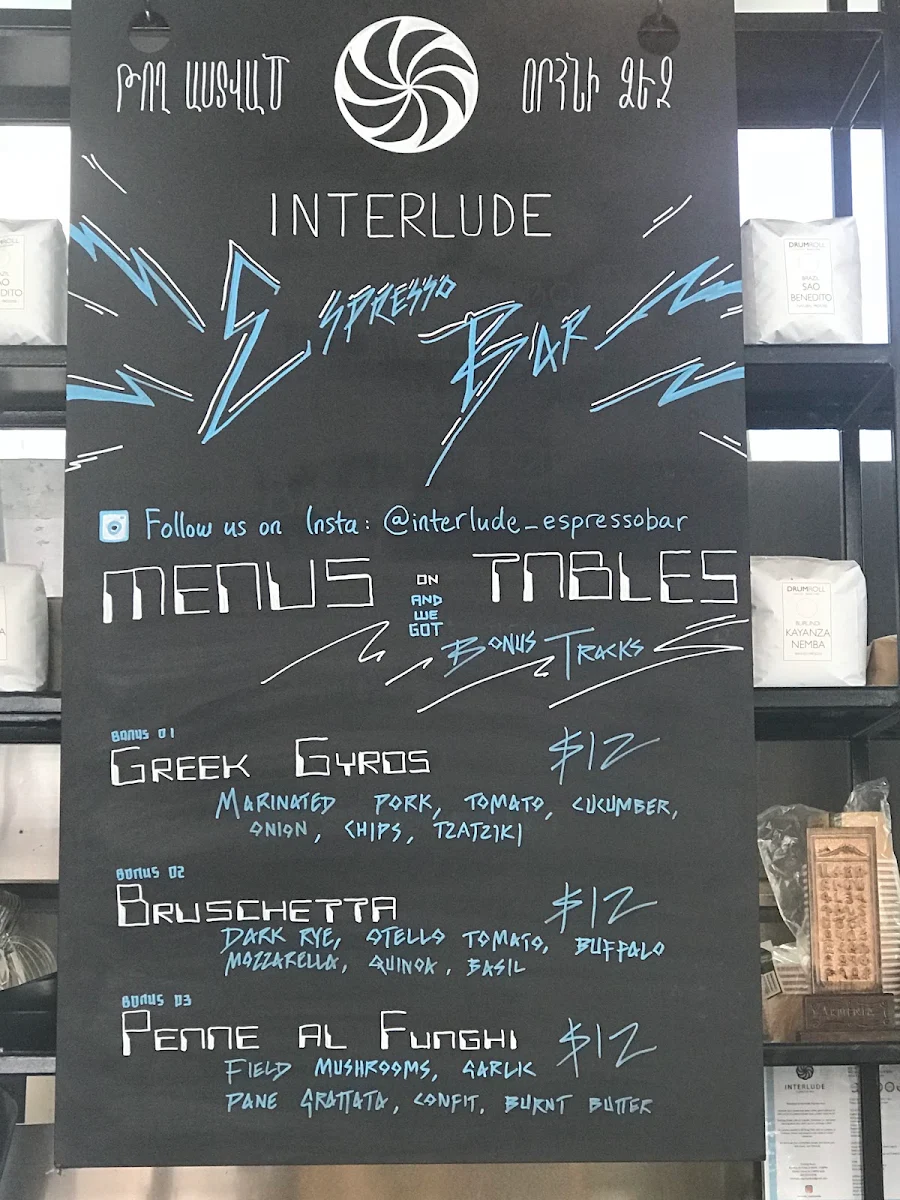 ԹՈՂ ԱՍՏՎԱԾ ՕՐՀՆԻ ՁԵԶ
INTERLUDE
ESPRESSO BAR
Follow us on Insta: @interlude_espressobar
MENUS ON TABLES
AND WE GOT
BONUS TRACKS
BONUS 01
GREEK GYROS $12
MARINATED PORK, TOMATO, CUCUMBER,
ONION, CHIPS, TZATZIKI
BONUS 02
BRUSCHETTA $12
DARK RYE, OTELLO TOMATO, BUFFALO
MOZZARELLA, QUINOA, BASIL
BONUS 03
PENNE AL FUNGHI $12
FIELD MUSHROOMS, GARLIC
PANE GRATTATA, CONFIT, BURNT BUTTER
DRUMROLL
BRAZIL
SAO
BENEDITO
DRUMROLL
BURUNDI
KAYANZA
NEMBA
INTERLUDE